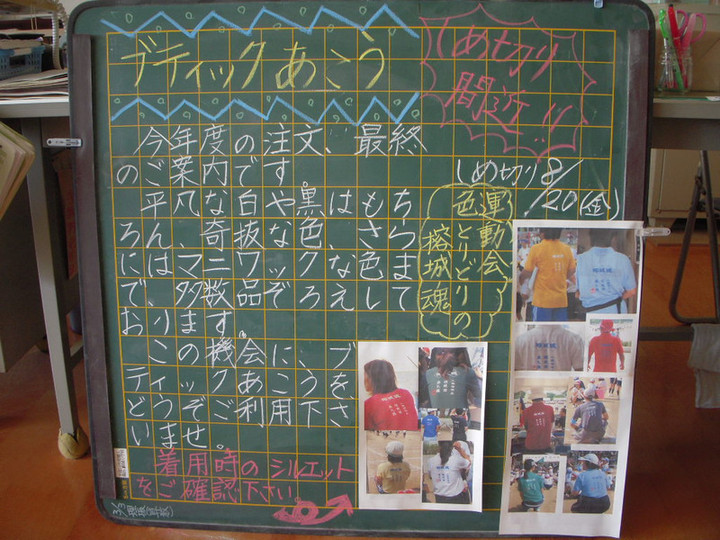 ブティックあこう
しめ切り
間近!!
今年度の注文、最終
のご案内です。
しめ切り8/20(金)
平凡な白や黒はもち
ろん、奇抜な色、さら
にはマニワックな色ま
で、多数品ぞろえして
おります。
運動会、
色とりどりの
榕城魂
この機会に、ブ
ティックあこうを、
どうぞご利用下さ
いませ。
着用時のシルエット
をご確認下さい